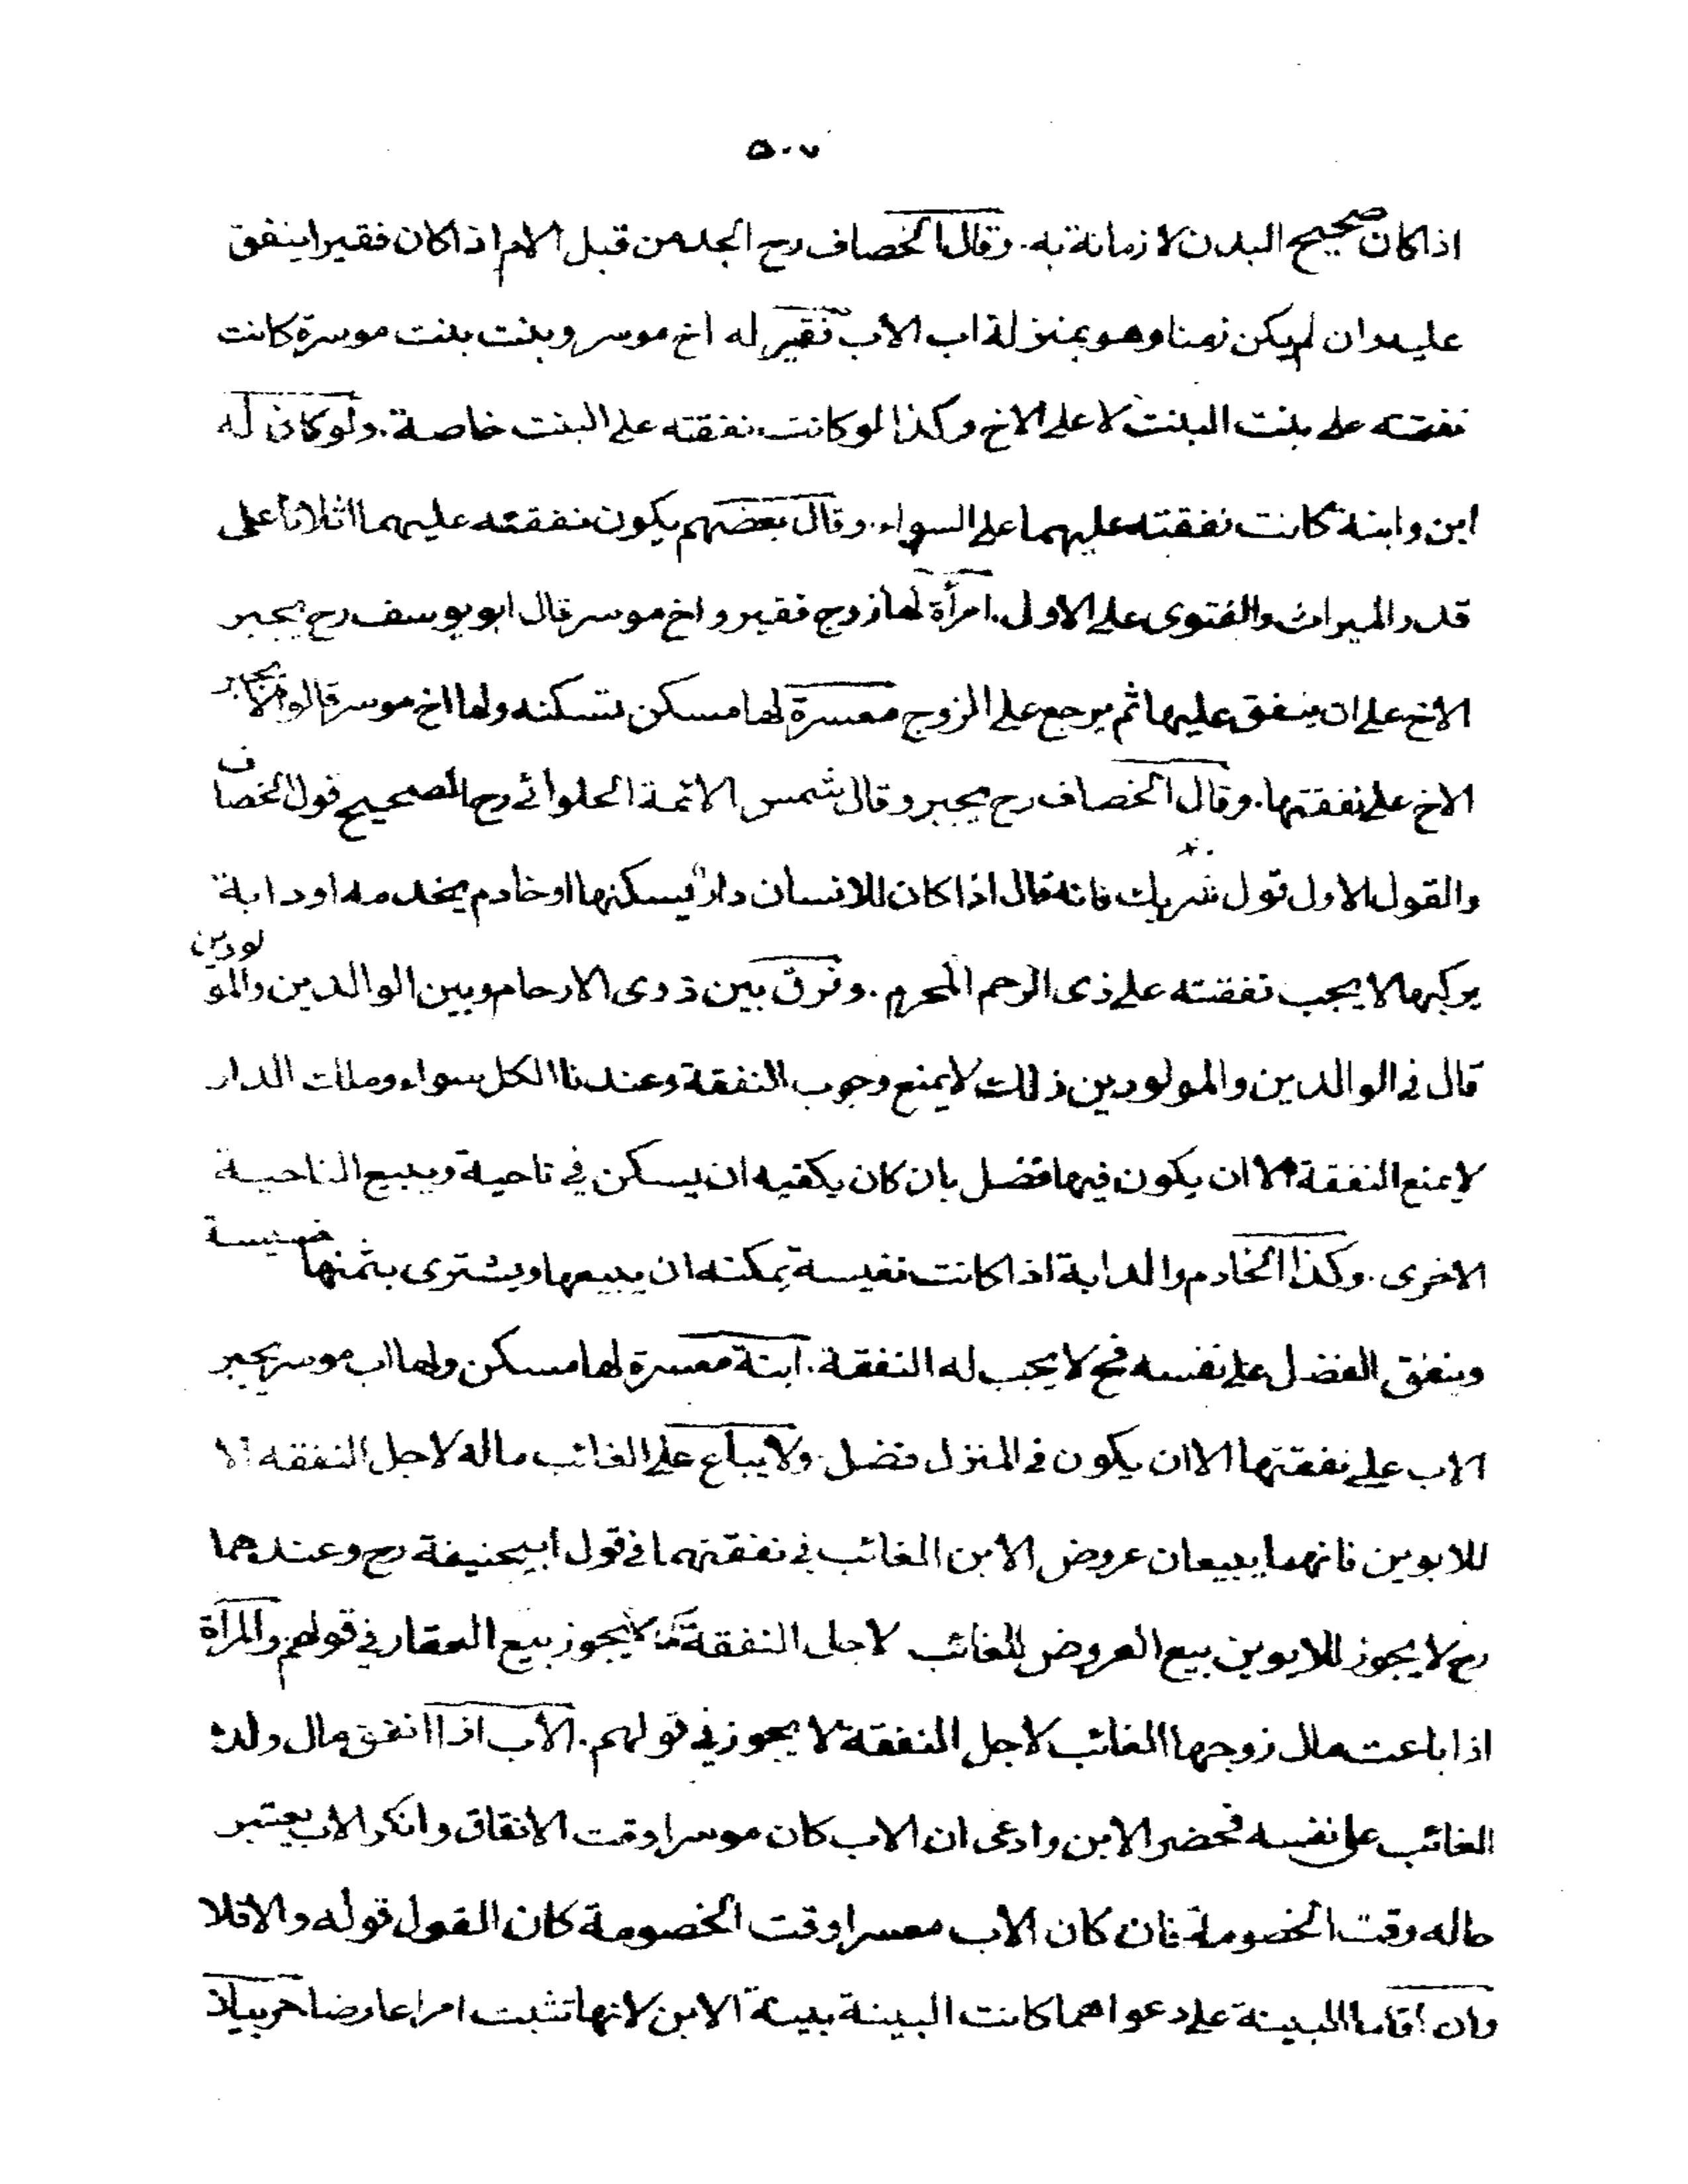 ٥٠٧
اذا كان صحيح البدن لا زمانة به. وقال الخصاف رح الجد من قبل الام اذا كان فقيرا ينفق
عليه وان لم يكن زمنا وهو بمنزلة اب الأب فقير له اخ موسر وبنت بنت موسرة كانت
نفقته على بنت البنت لا على الاخ وكذا لو كانت نفقته على البنت خاصة. ولو كان له
ابن وابنة كانت نفقته عليهما على السواء. وقال بعضهم يكون نفقته عليهما اثلاثا على
قدر الميراث والفتوى على الاولى. امرأة لها زوج فقير واخ موسر قال ابو يوسف رح يجبر
الاخ على ان ينفق عليها ثم يرجع على الزوج معسرة لها مسكن تسكنه ولها اخ موسر قالوا لا يجبر
الاخ على نفقتها. وقال الخصاف رح يجبر وقال شمس الائمة الحلوائي رح الصحيح قول الخصاف
والقول الاول قول شريك فانه قال اذا كان للانسان دار يسكنها او خادم يخدمه او دابة
يركبها لا يجب نفقته على ذى الرحم المحرم. وفرق بين ذوى الارحام وبين الوالدين والمولودين
قال في الوالدين والمولودين ذلك لا يمنع وجوب النفقة وعندنا الكل سواء وملك الدار
لا يمنع النفقة الا ان يكون فيها فضل بان كان يكفيه ان يسكن في ناحية ويبيع الناحية
الاخرى. وكذا الخادم والدابة اذا كانت نفيسة يمكنه ان يبيعها ويشترى بثمنها خسيسة
وينفق الفضل على نفسه فح لا يجب له النفقة. ابنة معسرة لها مسكن ولها اب موسر يجبر
الاب على نفقتها الا ان يكون في المنزل فضل. ولا يباع على الغائب ماله لاجل النفقه الا
للابوين فانهما يبيعان عروض الابن الغائب في نفقتهما في قول ابيحنيفة رح وعندهما
رح لا يجوز للابوين بيع العروض للغائب لاجل النفقة كما لا يجوز بيع العقار في قولهم والمرأة
اذا باعت مال زوجها الغائب لاجل النفقة لا يجوز في قولهم. الأب اذا انفق مال ولده
الغائب على نفسه فحضر الابن وادعى ان الاب كان موسرا وقت الانفاق وانكر الاب يعتبر
حاله وقت الخصومة فان كان الاب معسرا وقت الخصومة كان القول قوله والا فلا
وان اقاما البينة على دعواهما كانت البينة بينة الابن لانها تثبت امرا عارضا